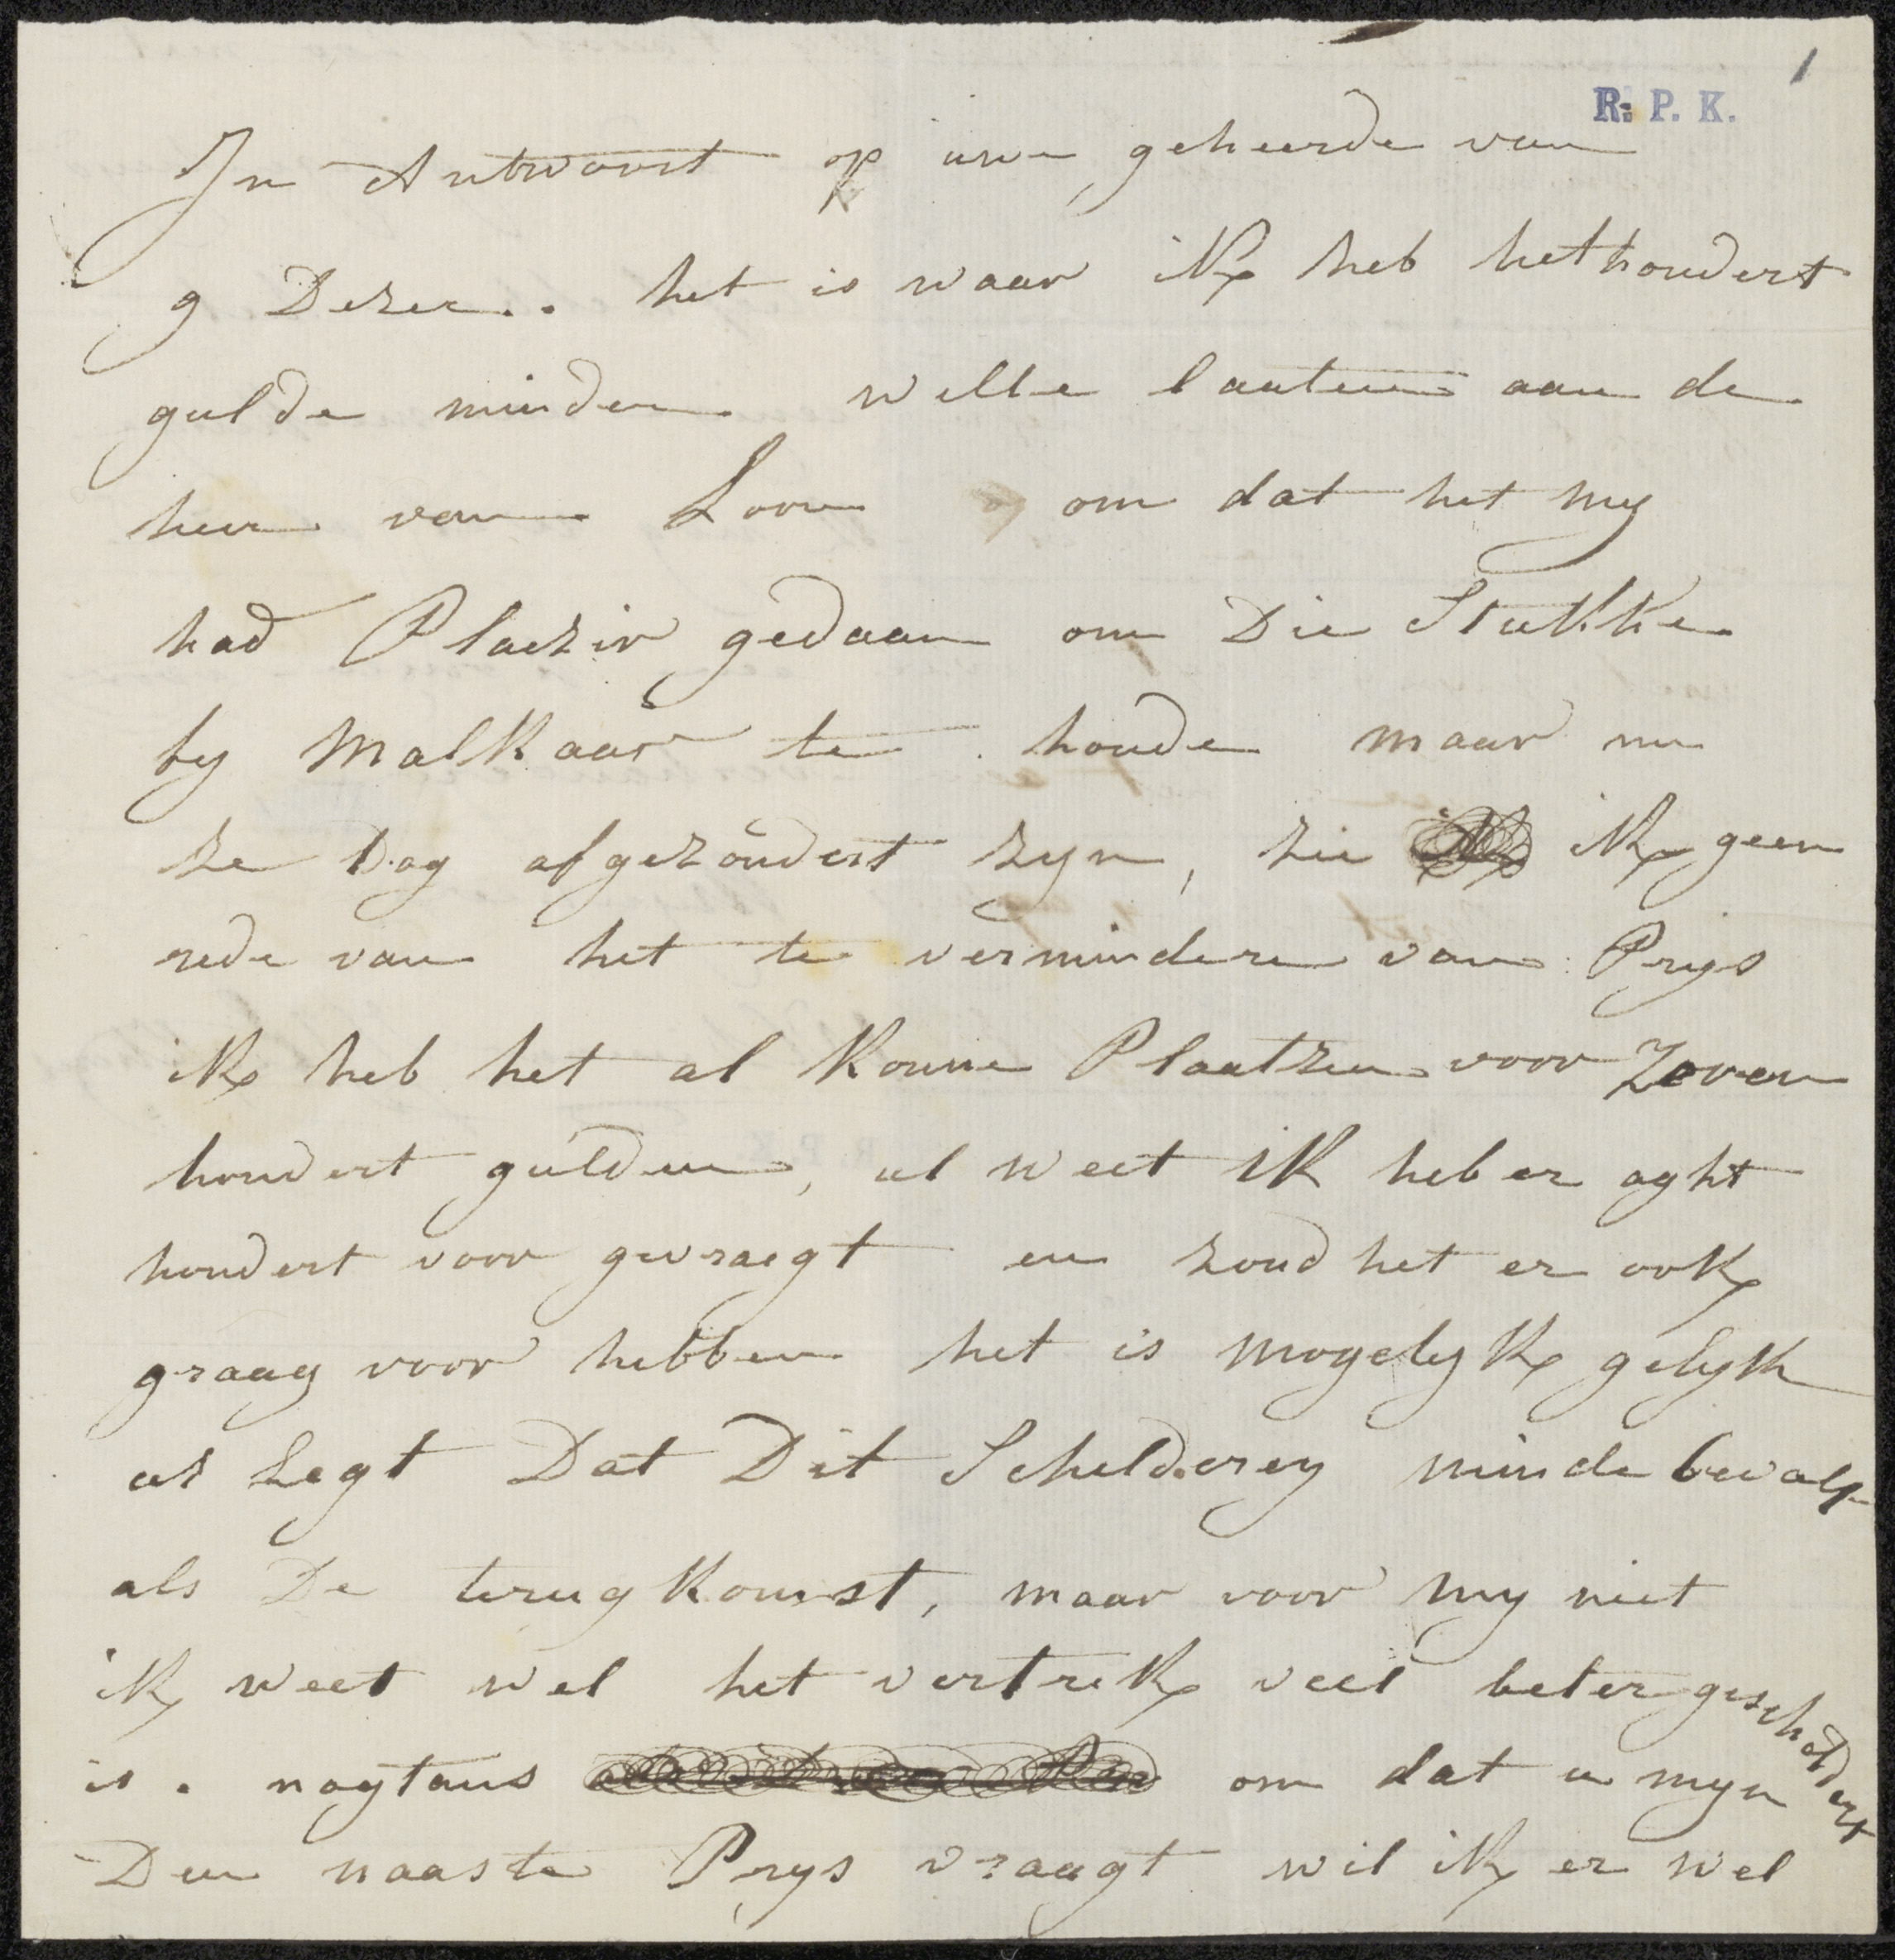 1
R: P. K.
In Antwoort op uwe geheerde van
9 Dezer.. het is waar ik heb het hondert
gulde minder wille laaten aan de
heer van Loon om dat het my
had Plaezir gedaan om Die Stukke
by Malkaar te houde maar nu
ze Dog afgezondert zyn, zie ik geen
rede van het te verminderen van Prys
ik heb het al konne Plaatzen voor Zeven
hondert gulden, ul weet ik heb er aght
hondert voor gevraegt en zoud het er ook
graag voor hebben het is mogelyk gelyk
us Zegt Dat Dit Schelderey minde bevalt
als De terugkomst, maar voor my niet
ik weet wel het vertrek veel beter gescheldert
is. nogtans om dat u myn
Den naaste Prys vraagt wil ik er wel